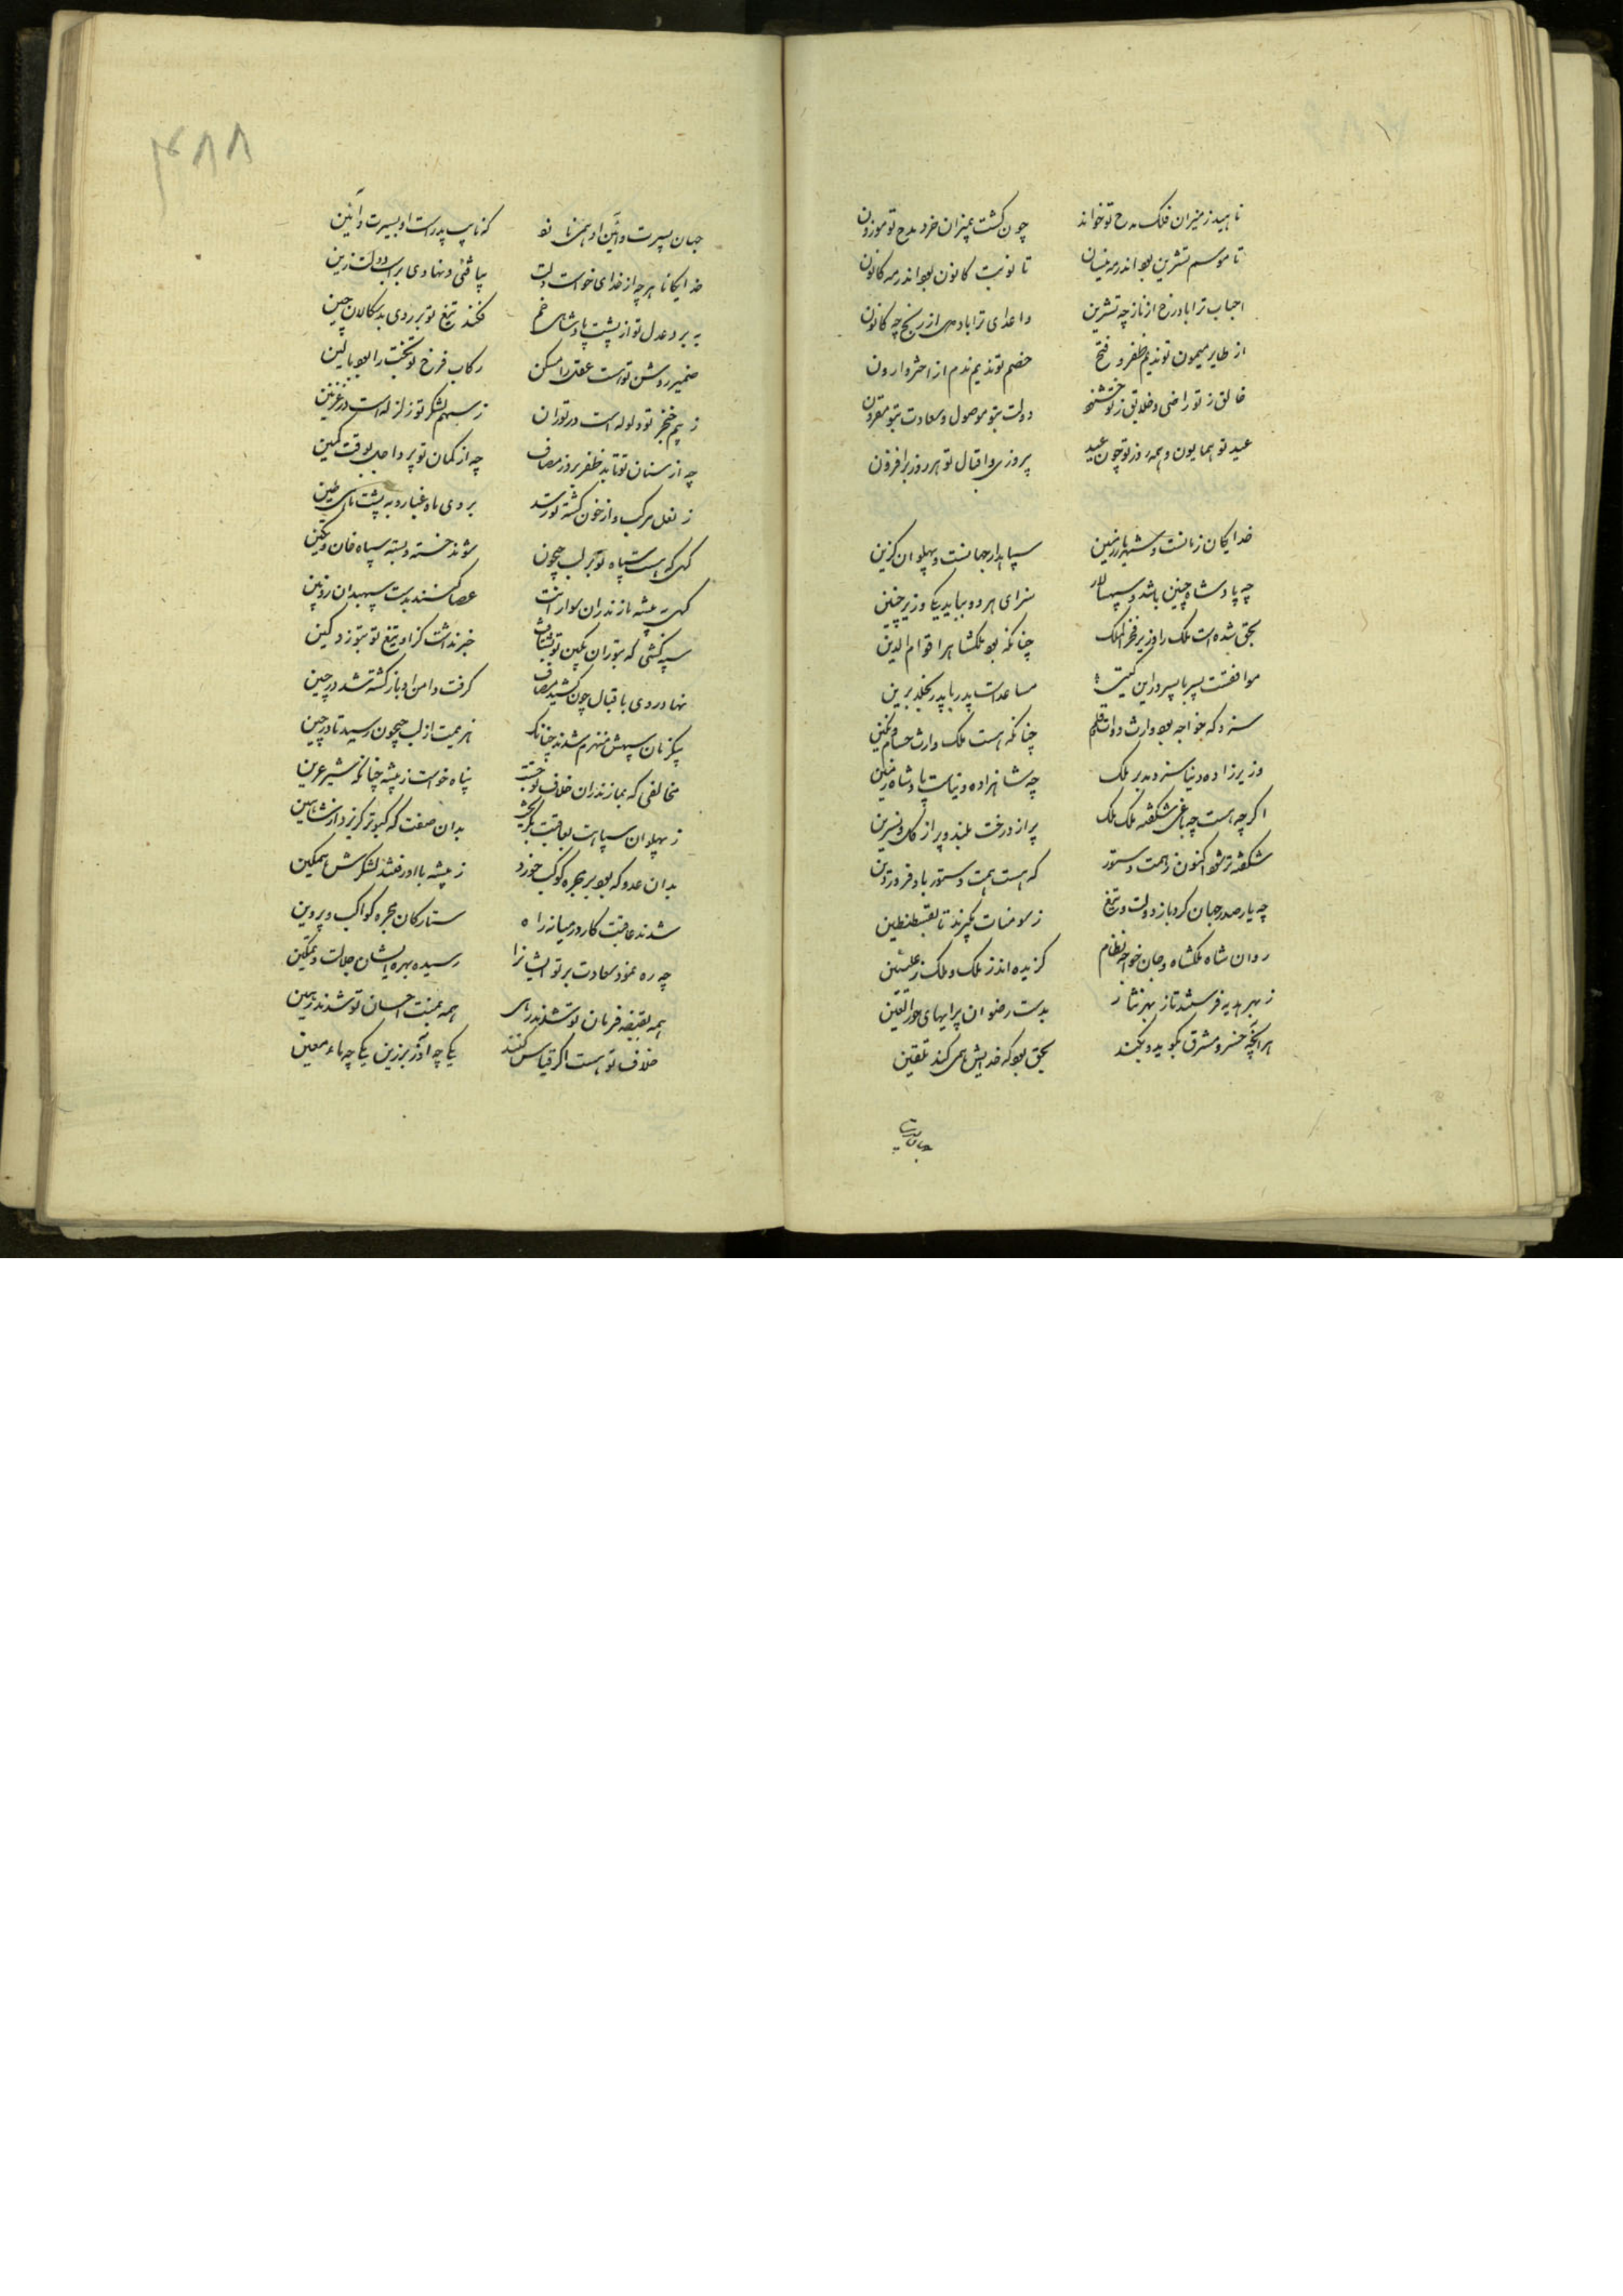 ناهید ز میزان فلک مدح تو خواند چون گشت بمیزان خرد مدح تو موزون
تا موسم تشرین بود اندر مه نیسان تا نوبت کانون بود اندر مه کانون
احباب ترا باد رخ از ناز چه تشرین و اعدای ترا باد دل از رنج چه کانون
از طایر میمون تو ندیم ظفر و فتح خصم تو ندیم ندم از اختر وارون
خالق ز تو راضی و خلایق ز تو خشنود دولت بتو موصول و سعادت بتو مقرون
عید تو همایون و همه روز تو چون عید پیروزی و اقبال تو هر روز بر افزون
خدایگان زمانست و شهریار زمین سپاهدار جهانست و پهلوان گزین
چه پادشاه چنین باشد و سپهسالار سزای هر دو بباید یکی وزیر چنین
بحق شده است ملک را وزیر فخر الملک چنانکه بود ملکشاه را قوام الدین
موافقست پسر با پسر در این گیتی مساعدست پدر با پدر بخلد برین
سزد که خواجه بود وارث دوات و قلم چنانکه هست ملک وارث حسام و نگین
وزیرزاده دنیا سزد مدبر ملک چه شاهزاده دنیاست پادشاه زمین
اگرچه هست چه باغی شکفته ملک ملک پر از درخت بلند و پر از گل و نسرین
شکفته تر شود اکنون ز همت دستور که هست همت دستور باد فروردین
چه یار صدر جهان کرد باز دولت و تیغ ز سومنات بگیرند تا بقسطنطین
روان شاه ملکشاه و جان خواجه نظام گزیده اند ز ملک و ملک ز علیین
ز بهر هدیه فرستند تا ز بهر نثار بدست رضوان پیرایهای حور العین
هر آنچه خسرو مشرق بگوید و بکند بحق بود که خدایش همی کند تلقین
۴۸۸
جهان بسیرت و آئین او همی نازد که نایب پدرست او بسیرت و آئین
خدایگانا هر چه از خدای خواست دلت بیافتی و نهادی بر اسب دولت زین
ببرد عدل تو از پشت پادشاهی خم فکند تیغ تو بر روی بدسگالان چین
ضمیر روشن تو است عقل را مسکن رکاب فرخ تو بخت را بود بالین
ز بیم خنجر تو ولوله است در توران ز سهم لشکر تو زلزله است در غزنین
چه از سنان تو تابد ظفر بروز مصاف چه از کمان تو پرد اجل بوقت کمین
ز نعل مرکب و از خون کشته تو رسد بروی ماه غبار و به پشت ماهی طین
گهی که هست سپاه تو بر لب جیحون شوند خسته و بسته سپاه خان و تکین
گهی به بیشه مازندران سوارانت عصا کنند بدست سپهبدان زوبین
سپه کشی که بتوران بکین تو بشتافت خبر نداشت کز او تیغ تو بتوزد کین
نهاد روی باقبال چون کشید مصاف گرفت دامن ادبار کشته شد در چین
یکزمان سپهش منهزم شدند چنانک هزیمت از لب جیحون رسید تا در چین
مخالفی که بمازندران خلاف تو جست پناه خواست ز بیشه چنانکه شیر عرین
ز پهلوان سپاهت بعاقبت بگریخت بدان صفت که کبوتر گریزد از شاهین
بدان عدو که بود بر مجره کوکب خرد ز بیشه با او رفتند لشکرش همگین
شدند عاقبت کار در میانه راه ستارگان مجره کواکب پروین
چه ره نمود سعادت بر تو ایشانرا رسیده بهره ایشان جلالت و تمکین
همه بقبضه فرمان تو شدند رهی همه بمنت احسان تو شدند رهین
خلاف تو هست اگر قیاس کنند یکی چه آذر برزین یکی چه ماء معین